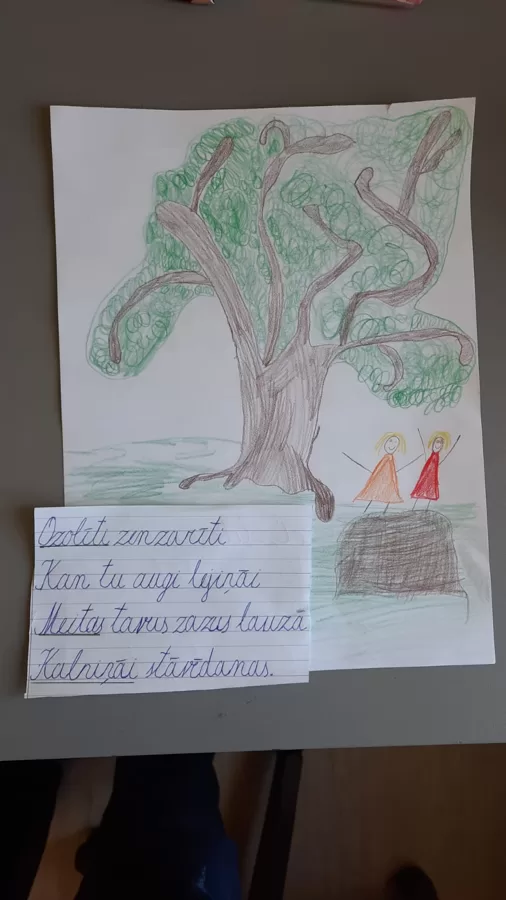 Ozolīti zemzarīti
Kam tu augi lejiņāi
Meitas tavus zazus lauzā
Kalniņāi stāvēdamas.